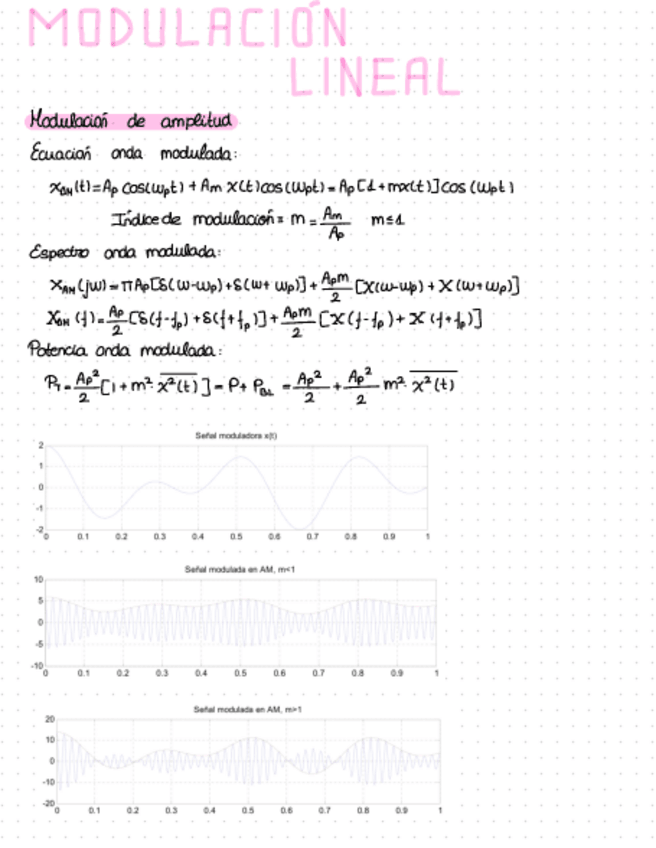 MODULACIÓN
LINEAL
Modulación de amplitud
Ecuación onda modulada:
x_AM(t) = Ap cos(ωpt) + Am x(t) cos(ωpt) = Ap [1 + mx(t)] cos(ωpt)
Índice de modulación = m = Am/Ap m≤1
Espectro onda modulada:
X_AM(jω) = πAp[δ(ω-ωp) + δ(ω+ωp)] + Apm/2 [X(ω-ωp) + X(ω+ωp)]
X_AM(f) = Ap/2 [δ(f-fp) + δ(f+fp)] + Apm/2 [X(f-fp) + X(f+fp)]
Potencia onda modulada:
P_T = Ap²/2 [1 + m²·x̅²̅(̅t̅)̅] = P + P_BL = Ap²/2 + Ap²/2 m²·x̅²̅(̅t̅)̅
Señal moduladora x(t)
2
1
0
-1
-2
0 0.1 0.2 0.3 0.4 0.5 0.6 0.7 0.8 0.9 1
Señal modulada en AM, m<1
10
5
0
-5
-10
0 0.1 0.2 0.3 0.4 0.5 0.6 0.7 0.8 0.9 1
Señal modulada en AM, m>1
20
10
0
-10
-20
0 0.1 0.2 0.3 0.4 0.5 0.6 0.7 0.8 0.9 1